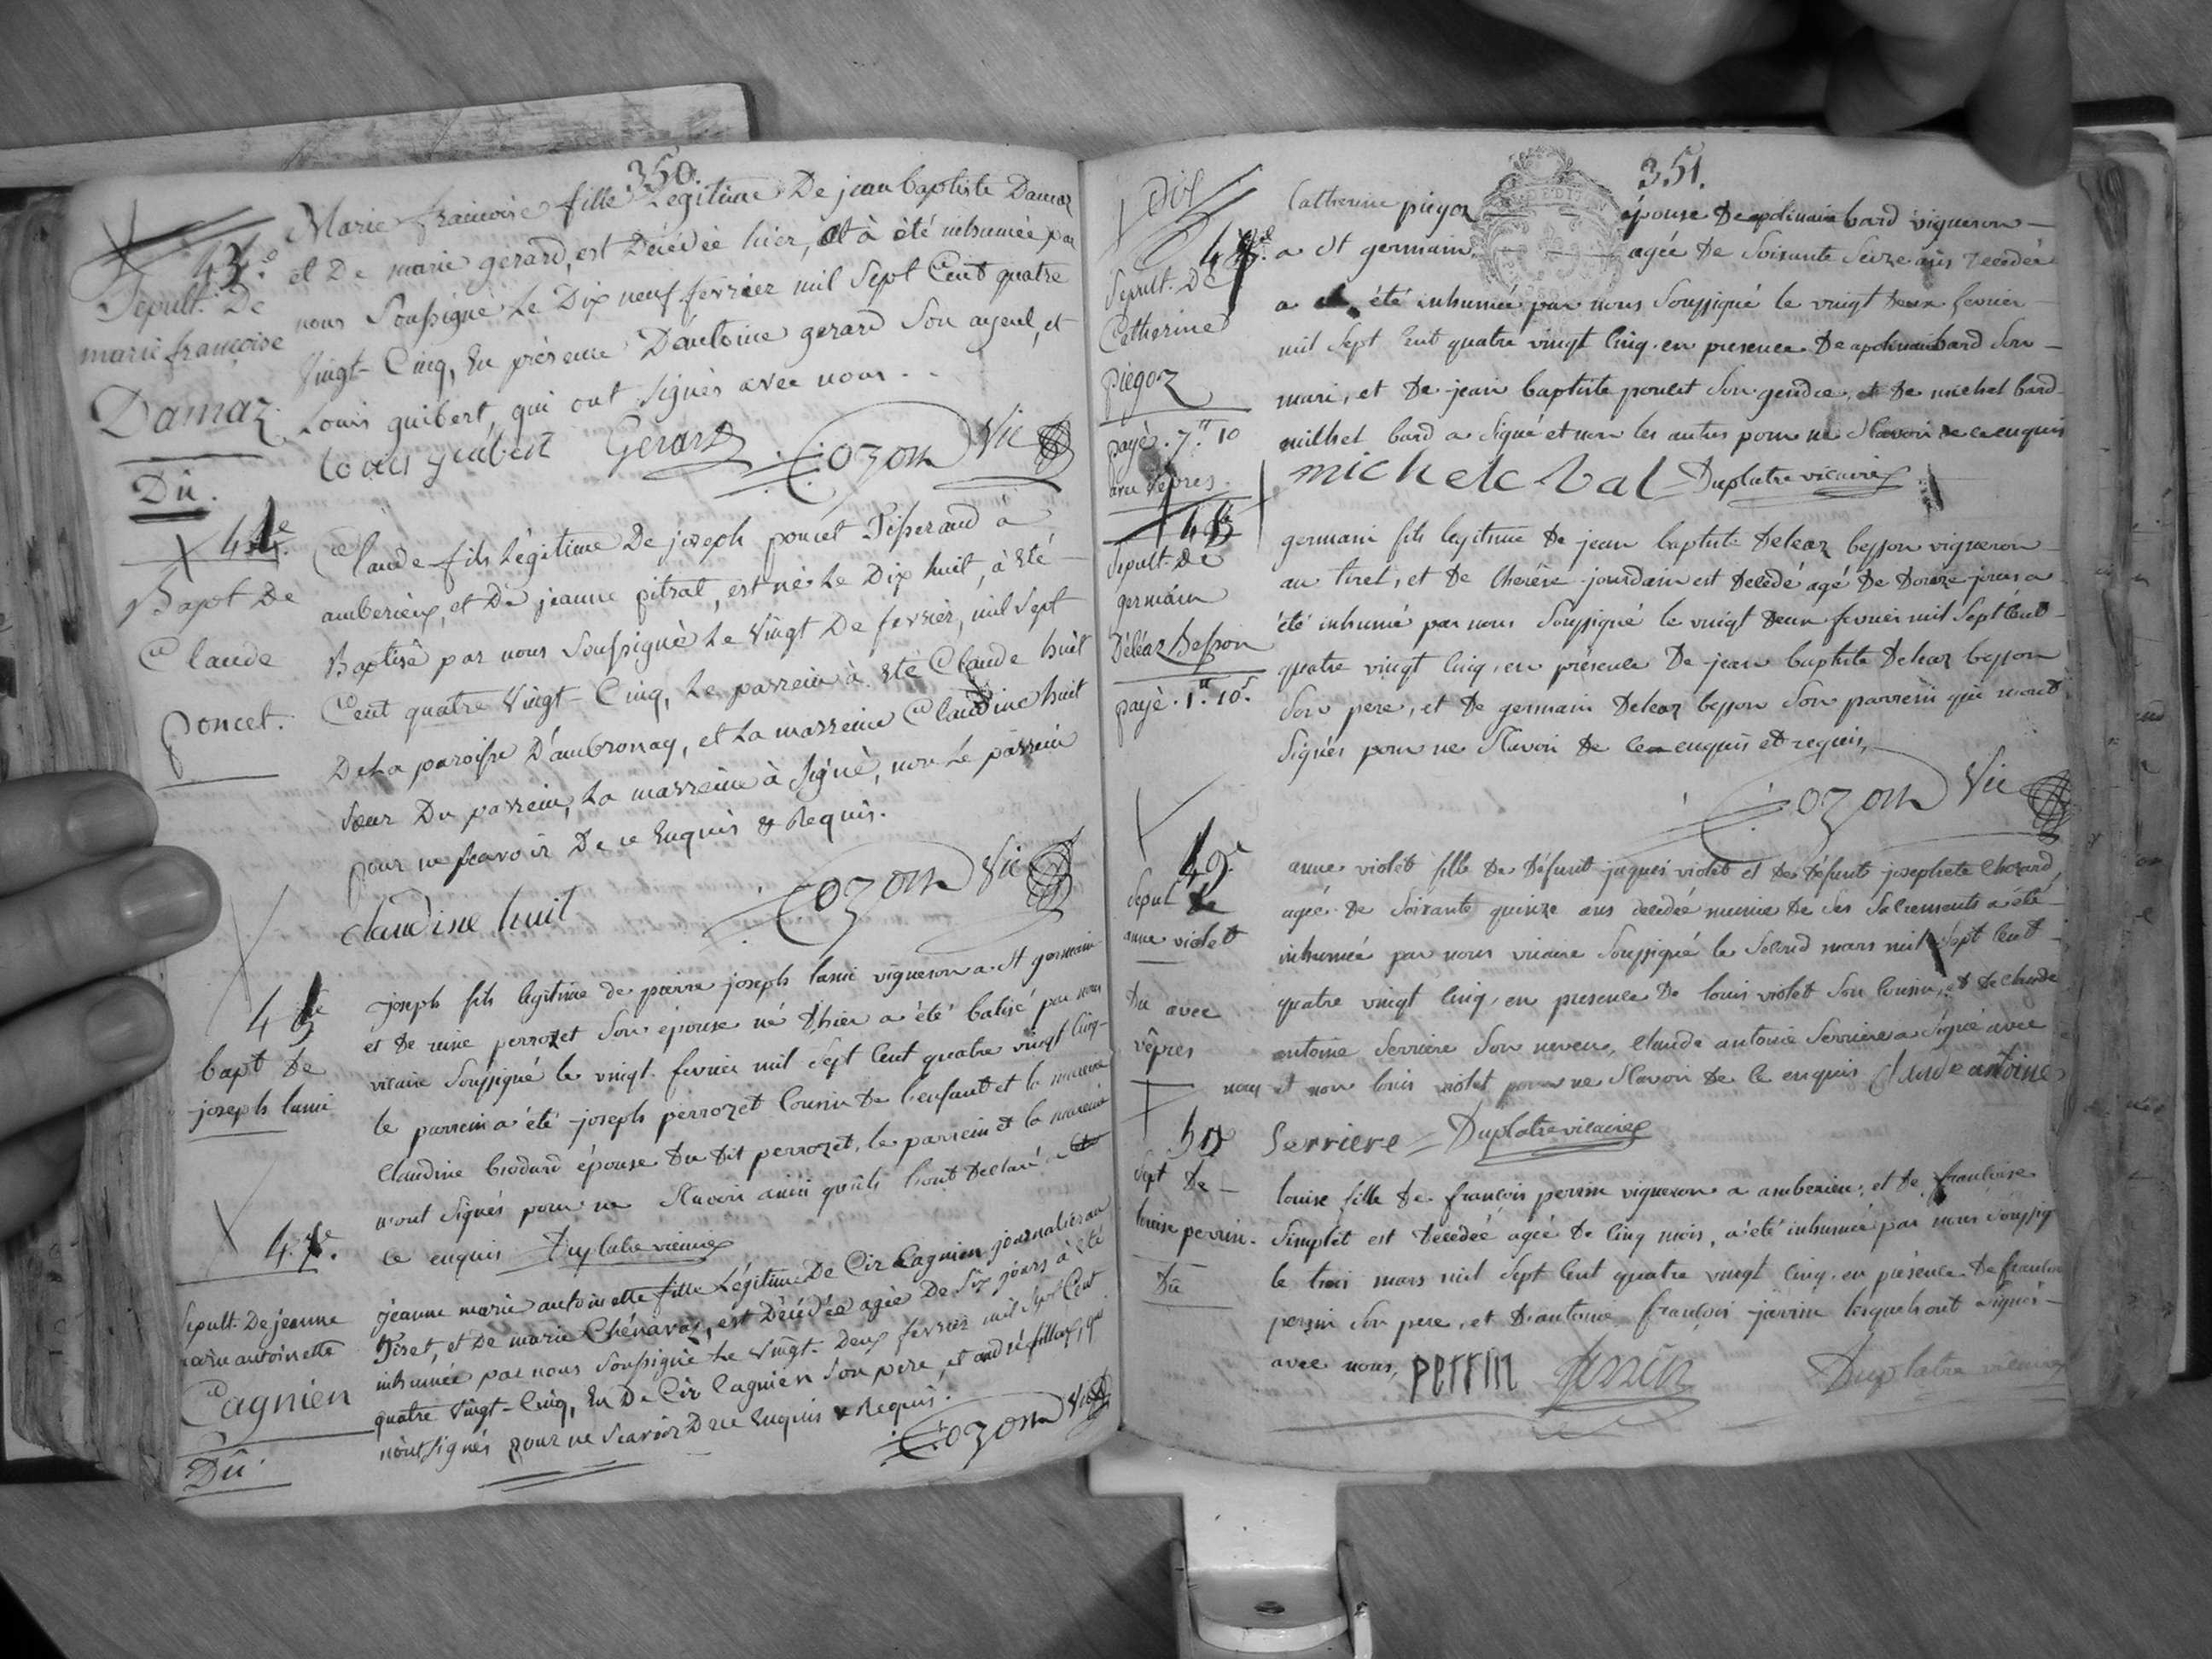 350.
43.e
Sepult. De
marie françoise
Damaz
Dû.
Marie francoise fille Légitime De jean baptiste Damaz
et De marie gerard, est Décédée hier, et à été inhumée par
nous Soussigné Le Dix neuf fevrier mil Sept Cent quatre
Vingt-Cinq, En présence D'antoine gerard Son ayeul, et
Louis guibert, qui ont Signés avec nous.
Gerard Cozon Vic
44.e
Bapt De
Claude
Poncet.
Claude fils Légitime De joseph poncet Tisserand à
amberieux, et De jeanne pitrat, est né Le Dix huit, à Eté
Baptisé par nous Soussigné Le Vingt De fevrier, mil Sept
Cent quatre Vingt-Cinq, Le parrein à Eté Claude huit
De La paroisse D'ambronay, et La marreine Claudine huit
Sœur Du parrein, La marreine à Signé, non Le parrein
pour ne sçavoir De ce Enquis & Requis.
Claudine huit Cozon Vic
45
bapt de
joseph lami
joseph fils legitime de pierre joseph lami vigneron a St germain
et de reine perrozet Son épouse né d'hier a été batisé par nous
vicaire Soussigné le vingt fevrier mil Sept Cent quatre vingt Cinq-
le parrein a été joseph perrozet Cousin de l'enfant et la mareine
Claudine brodard épouse du dit perrozet, le parrein et la mareine
n'ont signés pour ne Sçavoir ainsi qu'ils l'ont declaré
ce enquis Duplatre vicaire
Sepult. De jeanne
marie antoinette
Cagnien
Dû.
jeanne marie antoinette fille Légitime De Cir Cagnien journalier au
Tiret, et De marie Chénavaz, est Décédée agée De Six jours à Eté
inhumée par nous Soussigné Le Vingt-Deux fevrier mil Sept Cent
quatre Vingt-Cinq, En De Cir Cagnien Son pere, et andré
n'ont signés pour ne Scavoir De ce Enquis & Requis.
Cozon Vic
351.
Sepult. De
Catherine
piegoz
payé. 7.tt 10
avec Vêpres.
Catherine piegoz épouse De apolinaire bard vigneron
a St germain agée De Soixante Seize ans decedée
a été inhumée par nous Soussigné le vingt deux fevrier
mil Sept Cent quatre vingt Cinq. en presence De apolinaire bard Son
mari, et De jean baptiste poncet Son gendre, et de michel bard
milhel bard a Signé et non les autres pour ne Scavoir de ce enquis
Duplatre vicaire
48
Sepult. De
germain
Déléaz Besson
payé. 1.tt 10.s
germain fils legitime De jean baptiste Deleaz besson vigneron
au tiret, et De therése jourdan est decedé agé De Douze jours a
été inhumé par nous Soussigné le vingt deux fevrier mil Sept Cent
quatre vingt Cinq, en présence De jean baptiste Deleaz besson
Son pere, et De germain Deleaz besson Son parrein qui n'ont
Signés pour ne Sçavoir De ce enquis et requis,
Cozon Vic
49.e
Sepul de
anne violet
Du avec
vêpres
anne violet fille De Défunt jaques violet et De défunte josephete Chorard,
agée De Soixante quinze ans decedée munie De Ses Sacrements a été
inhumée par nous vicaire Soussigné le Second mars mil Sept Cent
quatre vingt Cinq, en presence De louis violet Son Cousin, et De Claude
antoine Serriere Son neveu, Claude antoine Serriere a Signé avec
nous et non louis violet pour ne Sçavoir De Ce enquis Claude antoine
Serriere Duplatre vicaire
50
Sept De
louise perrin.
Dû
louise fille De françois perrin vigneron a amberieu, et De francoise
Simplet est decedée agée De Cinq mois, a été inhumée par nous Soussig
le trois mars mil Sept Cent quatre vingt Cinq. en présence De francois
perrin Son pere, et D'antoine françois janin lesquels ont signés
avec nous, perrin Duplatre vicaire